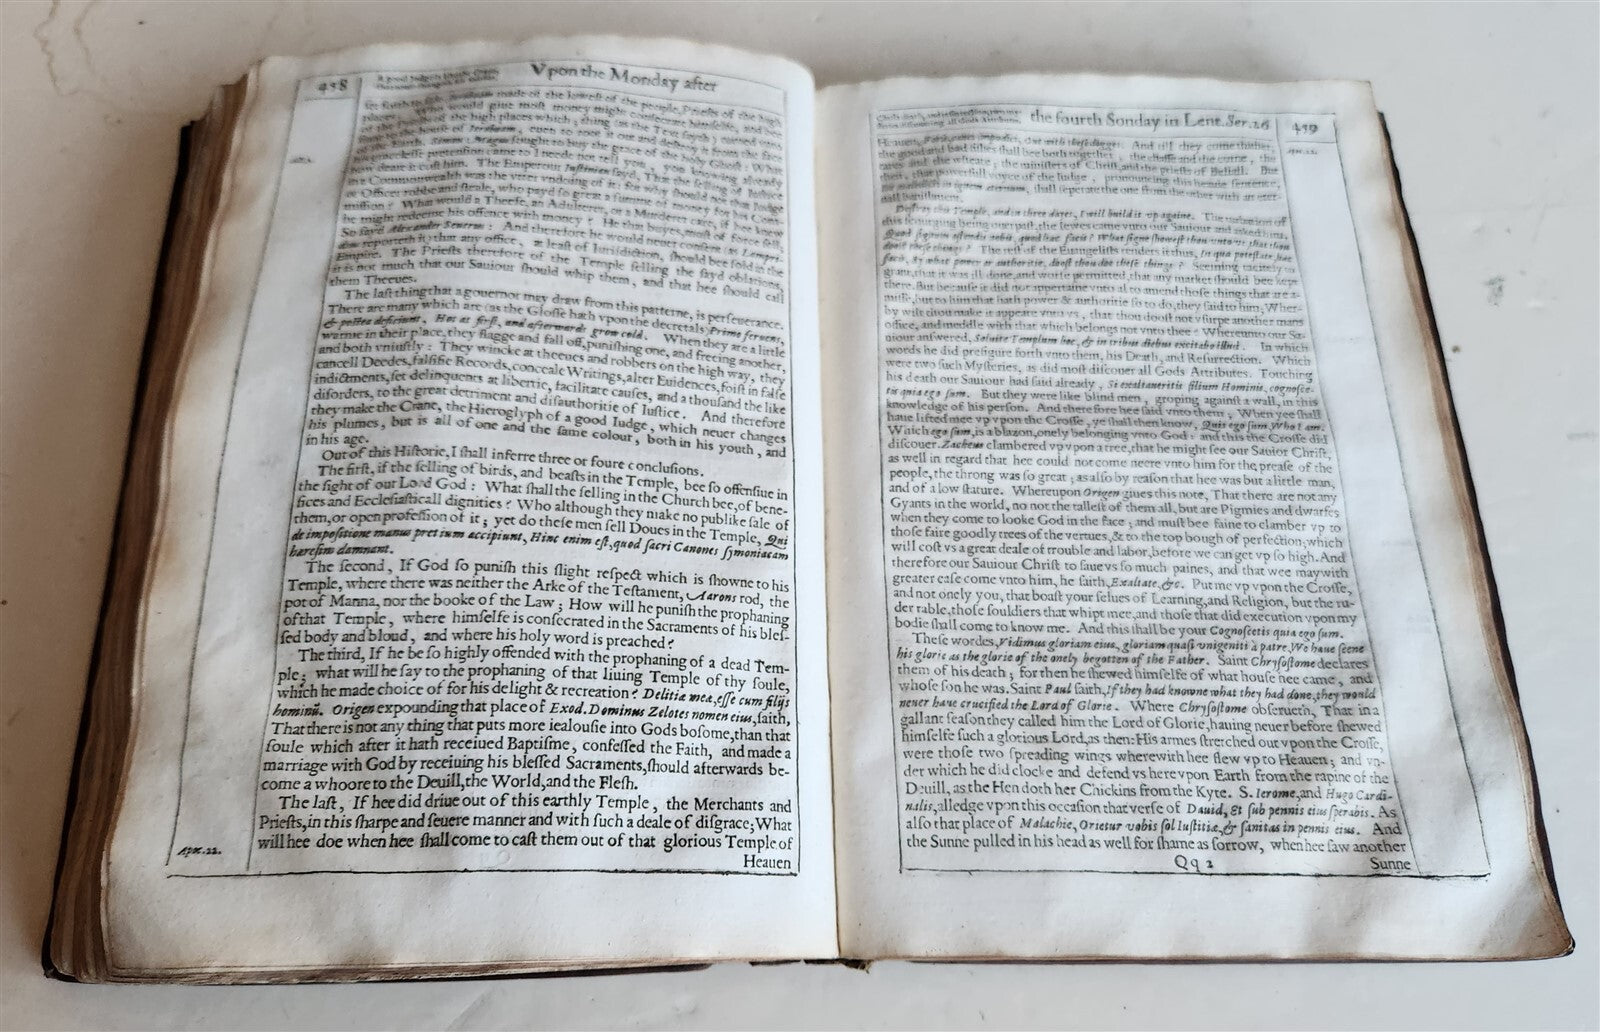 458
Vpon the Monday after
made of the lowest of the people, Priests of the high
places. Who would giue most money might consecrate himselfe, and bee
of the high places which; thing (as the Text saith) turned
to the house of Ieroboam, euen to root it out and destroy it from the face
of the Earth. Simon Magus sought to buy the grace of the holy Ghost: What
pretension came to I neede not tell you, you knowing already
how deare it cost him. The Emperour Iustinian sayd, That the selling of
Commonwealth was the vtter vndoing of it: for why should not that Iudge
or Officer robbe and steale, who payd so great a summe of money for his Com-
mission? What would a Theefe, an Adulterer, or a Murderer care, if hee knew
he might redeeme his offence with money? He that buyes, must of force sell,
So sayd Alexander Seuerus: And therefore he would neuer consent as Lampri-
dius reporteth it) that any office, at least of Iurisdiction, should bee sold in the
Empire. The Priests therefore of the Temple selling the sayd oblations,
it is not much that our Sauiour should whip them, and that hee should call
them Theeues.
The last thing that a gouernor may draw from this patterne, is perseuerance.
There are many which are (as the Glosse hath vpon the decretals) Prime feruens,
& postea deficiunt. Hot at first, and afterwards grow cold. When they are a little
warme in their place, they flagge and fall off, punishing one, and freeing another,
and both vniustly: They wincke at theeues and robbers on the high way, they
cancell Deedes, falsifie Records, conceale Writings, alter Euidences, foist in false
indictments, set delinquents at libertie, facilitate causes, and a thousand the like
disorders, to the great detriment and disauthoritie of Iustice. And therefore
they make the Crane, the Hieroglyph of a good Iudge, which neuer changes
his plumes, but is all of one and the same colour, both in his youth, and
in his age.
Out of this Historie, I shall inferre three or foure conclusions.
The first, if the selling of birds, and beasts in the Temple, bee so offensiue in
the sight of our Lord God: What shall the selling in the Church bee, of bene-
fices and Ecclesiasticall dignities? Who although they make no publike sale of
them, or open profession of it; yet do these men sell Doues in the Temple, Qui
de impositione manus pretium accipiunt, Hinc enim est, quod sacri Canones symoniacam
haresim damnant.
The second, If God so punish this slight respect which is showne to his
Temple, where there was neither the Arke of the Testament, Aarons rod, the
pot of Manna, nor the booke of the Law; How will he punish the prophaning
of that Temple, where himselfe is consecrated in the Sacraments of his bles-
sed body and bloud, and where his holy word is preached?
The third, If he be so highly offended with the prophaning of a dead Tem-
ple; what will he say to the prophaning of that liuing Temple of thy soule,
which he made choice of for his delight & recreation? Delitiæ meæ, esse cum filijs
hominū. Origen expounding that place of Exod. Dominus Zelotes nomen eius, saith,
That there is not any thing that puts more iealousie into Gods bosome, than that
soule which after it hath receiued Baptisme, confessed the Faith, and made a
marriage with God by receiuing his blessed Sacraments, should afterwards be-
come a whoore to the Deuill, the World, and the Flesh.
The last, If hee did driue out of this earthly Temple, the Merchants and
Priests, in this sharpe and seuere manner and with such a deale of disgrace; What
will hee doe when hee shall come to cast them out of that glorious Temple of
Apoc. 22.
Heauen
the fourth Sonday in Lent. Ser. 26
459
Heauen, And till they come thither,
the good and bad fishes shall bee both together, the chaffe and the corne, the
tares and the wheate; the ministers of Christ, and the priests of Beliall. But
then, that powerfull voyce of the Iudge, pronouncing this heauie sentence,
in ignem æternum, shall seperate the one from the other with an eter-
nall banishment.
Destroy this Temple, and in three dayes, I will build it vp againe. The of
this scourging being our past, the Iewes came vnto our Sauiour and asked him,
Quod signum ostendis nobis, quod hac facis? What signe showest thou vnto vs that thou
doost these things? The rest of the Euangelists renders it thus, In qua potestate, hac
facis, By what power or authoritie, doost thou doe these things? Seeming tacitely to
grant, that it was ill done, and worse permitted, that any market should bee kept
there. But because it did not appertaine vnto al to amend those things that are a-
misse, but to him that hath power & authoritie so to do, they said to him; Wher-
by wilt thou make it appeare vnto vs, that thou doost not vsurpe another mans
office, and meddle with that which belongs not vnto thee? Whereunto our Sa-
uiour answered, Soluite Templum hoc, & in tribus diebus excitabo illud. In which
words he did prefigure forth vnto them, his Death, and Resurrection. Which
were two such Mysteries, as did most discouer all Gods Attributes. Touching
his death our Sauiour had said already, Si exaltaueritis filium Hominis, cognosce-
tis quia ego sum. But they were like blind men, groping against a wall, in this
knowledge of his person. And therefore hee said vnto them, When yee shall
haue lifted mee vp vpon the Crosse, ye shall then know, Quis ego sum, Who I am.
Which ego sum, is a blazon, onely belonging vnto God: and this the Crosse did
discouer. Zacheus clambered vp vpon a tree, that he might see our Sauior Christ,
as well in regard that hee could not come neere vnto him for the prease of the
people, the throng was so great; as also by reason that hee was but a little man,
and of a low stature. Whereupon Origen giues this note, That there are not any
Gyants in the world, no not the tallest of them all, but are Pigmies and dwarfes
when they come to looke God in the face; and must bee faine to clamber vp to
those faire goodly trees of the vertues, & to the top bough of perfection; which
will cost vs a great deale of trouble and labor, before we can get vp so high. And
therefore our Sauiour Christ to saue vs so much paines, and that wee may with
greater ease come vnto him, he saith, Exaltate, &c. Put me vp vpon the Crosse,
and not onely you, that boast your selues of Learning, and Religion, but the ru-
der rable, those souldiers that whipt mee, and those that did execution vpon my
bodie shall come to know me. And this shall be your Cognoscetis quia ego sum.
These wordes, Vidimus gloriam eius, gloriam quasi vnigeniti à patre, We haue seene
his glorie as the glorie of the onely begotten of the Father. Saint Chrysostome declares
them of his death; for then he shewed himselfe of what house hee came, and
whose son he was. Saint Paul saith, If they had knowne what they had done, they would
neuer haue crucified the Lord of Glorie. Where Chrysostome obserueth, That in a
gallant season they called him the Lord of Glorie, hauing neuer before shewed
himselfe such a glorious Lord, as then: His armes stretched out vpon the Crosse,
were those two spreading wings wherewith hee flew vp to Heauen; and vn-
der which he did clocke and defend vs here vpon Earth from the rapine of the
Deuill, as the Hen doth her Chickins from the Kyte. S. Ierome, and Hugo Cardi-
nalis, alledge vpon this occasion that verse of Dauid, Et sub pennis eius sperabis. As
also that place of Malachie, Orietur vobis sol Iustitiæ, & sanitas in pennis eius. And
the Sunne pulled in his head as well for shame as sorrow, when hee saw another
Qq 2
Sunne